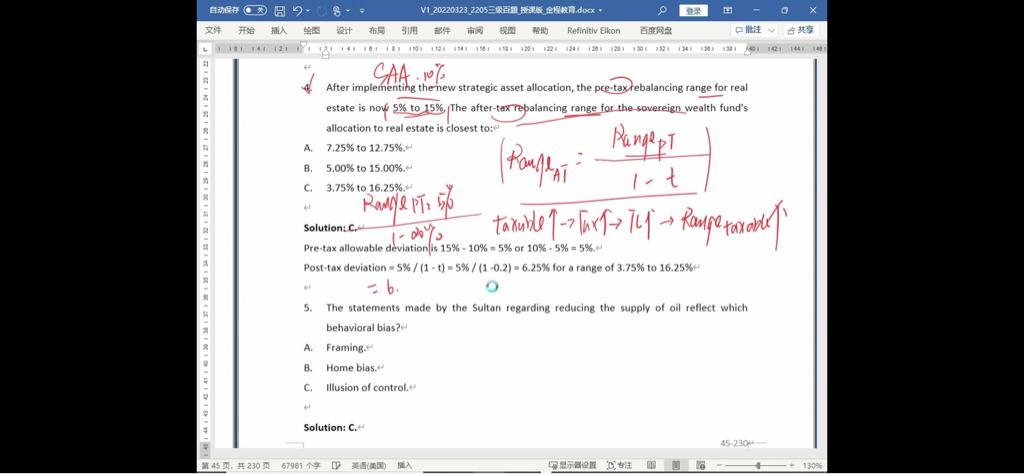 自动保存 关 V1_20220323_2205三级百题_授课版_金程教育.docx 登录
文件 开始 插入 绘图 设计 布局 引用 邮件 审阅 视图 帮助 Refinitiv Eikon 百度网盘 批注 共享
SAA. 10%
4. After implementing the new strategic asset allocation, the pre-tax rebalancing range for real
estate is now 5% to 15%. The after-tax rebalancing range for the sovereign wealth fund's
allocation to real estate is closest to:
A. 7.25% to 12.75%.
B. 5.00% to 15.00%.
C. 3.75% to 16.25%.
Range AT = Range PT / 1 - t
Range PT = 5%
1 - 20%
taxable↑ → Tax↑ → TC↑ → Range taxable↑
Solution: C.
Pre-tax allowable deviation is 15% - 10% = 5% or 10% - 5% = 5%.
Post-tax deviation = 5% / (1 - t) = 5% / (1 -0.2) = 6.25% for a range of 3.75% to 16.25%
= 6.
5. The statements made by the Sultan regarding reducing the supply of oil reflect which
behavioral bias?
A. Framing.
B. Home bias.
C. Illusion of control.
Solution: C.
45-230
第 45 页，共 230 页 67981 个字 英语(美国) 插入 显示器设置 专注 130%